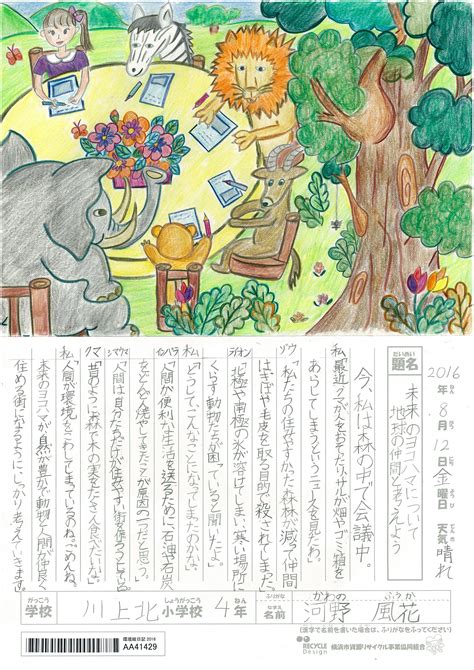 題名
だいめい
未来のヨコハマについて
地球の仲間と考えよう
2016年8月12日金曜日
天気 晴れ
今、私は森の中で会議中。
私「最近クマが人をおそったり、サルが畑やゴミ箱を
あらしてしまうというニュースを見たわ。」
ゾウ
「私たちの住みかすみかの森林が減り、仲間
はきばや毛皮を目的で殺されてしまった。」
ライオン
「北極や南極の氷が溶けてしまい、寒い場所に
くらす動物たちが困っていると聞いたよ。」
私
「どうしてこんなことになってしまったのかしら。」
「人間が便利な生活を送るために石油や石炭
などをどんどん燃やしてきたことが原因の一つだと思う。」
シマウマ
「人間は自分たちだけが住みやすい街を作ろうとしている。」
クマ「昔のように森で木の実をたくさん食べたいな。」
私「人間が環境をこわしてしまっているのね。ごめんね。」
未来のヨコハマが、自然が豊かで動物と人間が仲良く
住める街になるように、しっかり考えていきます。
がっこう
学校
川上北
しょうがっこう
小学校
4
ねん
年
ふりがな
かわの ふうか
なまえ
名前
河野 風花
(漢字で名前を書いた場合は、ふりがなをふってください)
環境絵日記 2016
AA41429
RECYCLE
Design
横浜市資源リサイクル事業協同組合